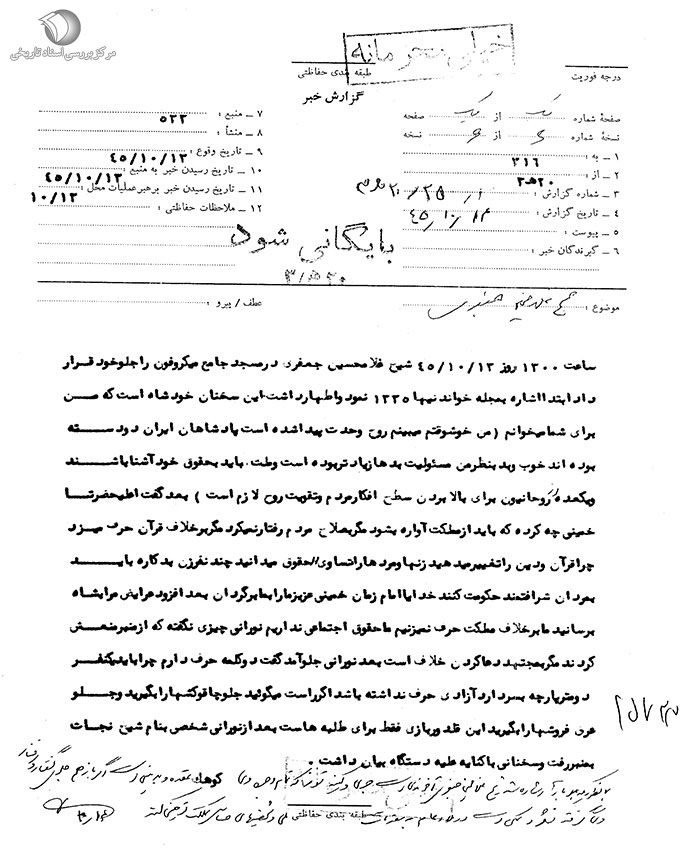 مرکز بررسی اسناد تاریخی
خیلی محرمانه
طبقه بندی حفاظتی
درجه فوریت
گزارش خبر
صفحهٔ شماره یک از یک صفحه
نسخهٔ شماره از نسخه
۱ - به : ۳۱۶
۲ - از : ۲۰ه‍۳
۳ - شماره گزارش :
۴ - تاریخ گزارش : ۴۵/۱۰/۱۴
۵ - پیوست :
۶ - گیرندگان خبر :
۷ - منبع : ۵۳۳
۸ - منشأ :
۹ - تاریخ وقوع : ۴۵/۱۰/۱۳
۱۰ - تاریخ رسیدن خبر به منبع : ۴۵/۱۰/۱۳
۱۱ - تاریخ رسیدن خبر برهبرعملیات محل : ۱۰/۱۳
۱۲ - ملاحظات حفاظتی :
بایگانی شود
۲۰ه‍/۳
موضوع :
عطف / پیرو :
ساعت ۱۳۰۰ روز ۴۵/۱۰/۱۳ شیخ غلامحسین جعفری درمسجد جامع میکروفون راجلوخود قرار
داد ابتدا اشاره بمجله خواندنیها ۱۳۳۵ نمود واظهارداشت این سخنان خودشاه است که من
برای شمامیخوانم (من خوشوقتم میبینم روح وحدت پیداشده است پادشاهان ایران دودسته
بوده اند خوب وبد بنظرمن مسئولیت بدها زیادتربوده است وملت باید بحقوق خود آشناباشند
ویکعده روحانیون برای بالا بردن سطح افکارمردم وتقویت روح لازم است ) بعد گفت اعلیحضرتا
خمینی چه کرده که باید ازمملکت آواره بشود مگربصلاح مردم رفتارنمیکرد مگربرخلاف قرآن حرف میزد
چراقرآن ودین راتغییرمیدهید زنهاومردهاراتساوی‌الحقوق میدانید چند نفرزن بدکاره باید
بمردان شرافتمند حکومت کنند خدایا امام زمان خمینی عزیزمارابمابرگردان بعد افزود عرایض مرابشاه
برسانید مابرخلاف مملکت حرف نمیزنیم ماحقوق اجتماعی نداریم نورانی چیزی نگفته که ازمنبرمنعش
کردند مگربمجتهد دعاکردن خلاف است بعد نورانی جلوآمد گفت دوکلمه حرف دارم چرابایدیکنفر
دومترپارچه بسردارد آزادی حرف نداشته باشد اگرراست میگوئید جلوچاقوکشهارابگیرید وجلو
عرق فروشهارابگیرید این قلدوربازی فقط برای طلبه هاست بعد ازنورانی شخصی بنام شیخ نجات
بمنبررفت وسخنانی باکنایه علیه دستگاه بیان داشت .
کوهک
طبقه بندی حفاظتی